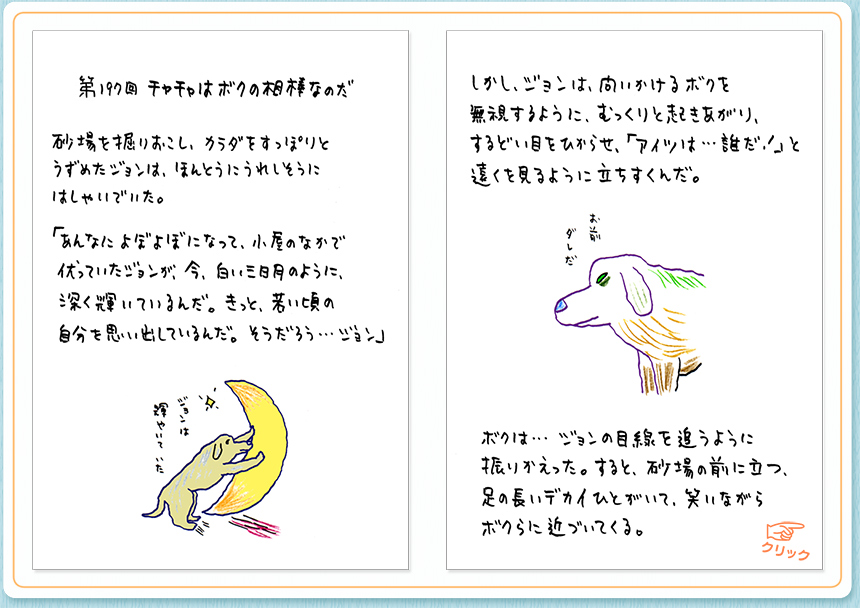 第197回 チャチャはボクの相棒なのだ
砂場を掘りおこし、カラダをすっぽりと
うずめたジョンは、ほんとうにうれしそうに
はしゃいでいた。
「あんなに よぼよぼになって、小屋のなかで
伏っていたジョンが、今、白い三日月のように、
深く輝いているんだ。きっと、若い頃の
自分を思い出しているんだ。そうだろう…ジョン」
ジョンは
輝やいて いた
しかし、ジョンは、問いかけるボクを
無視するように、むっくりと起きあがり、
するどい目をひからせ、「アイツは…誰だ!」と
遠くを見るように立ちすくんだ。
お前
ダレだ
ボクは… ジョンの目線を追うように
振りかえった。すると、砂場の前に立つ、
足の長いデカイひとがいて、笑いながら
ボクらに近づいてくる。
クリック